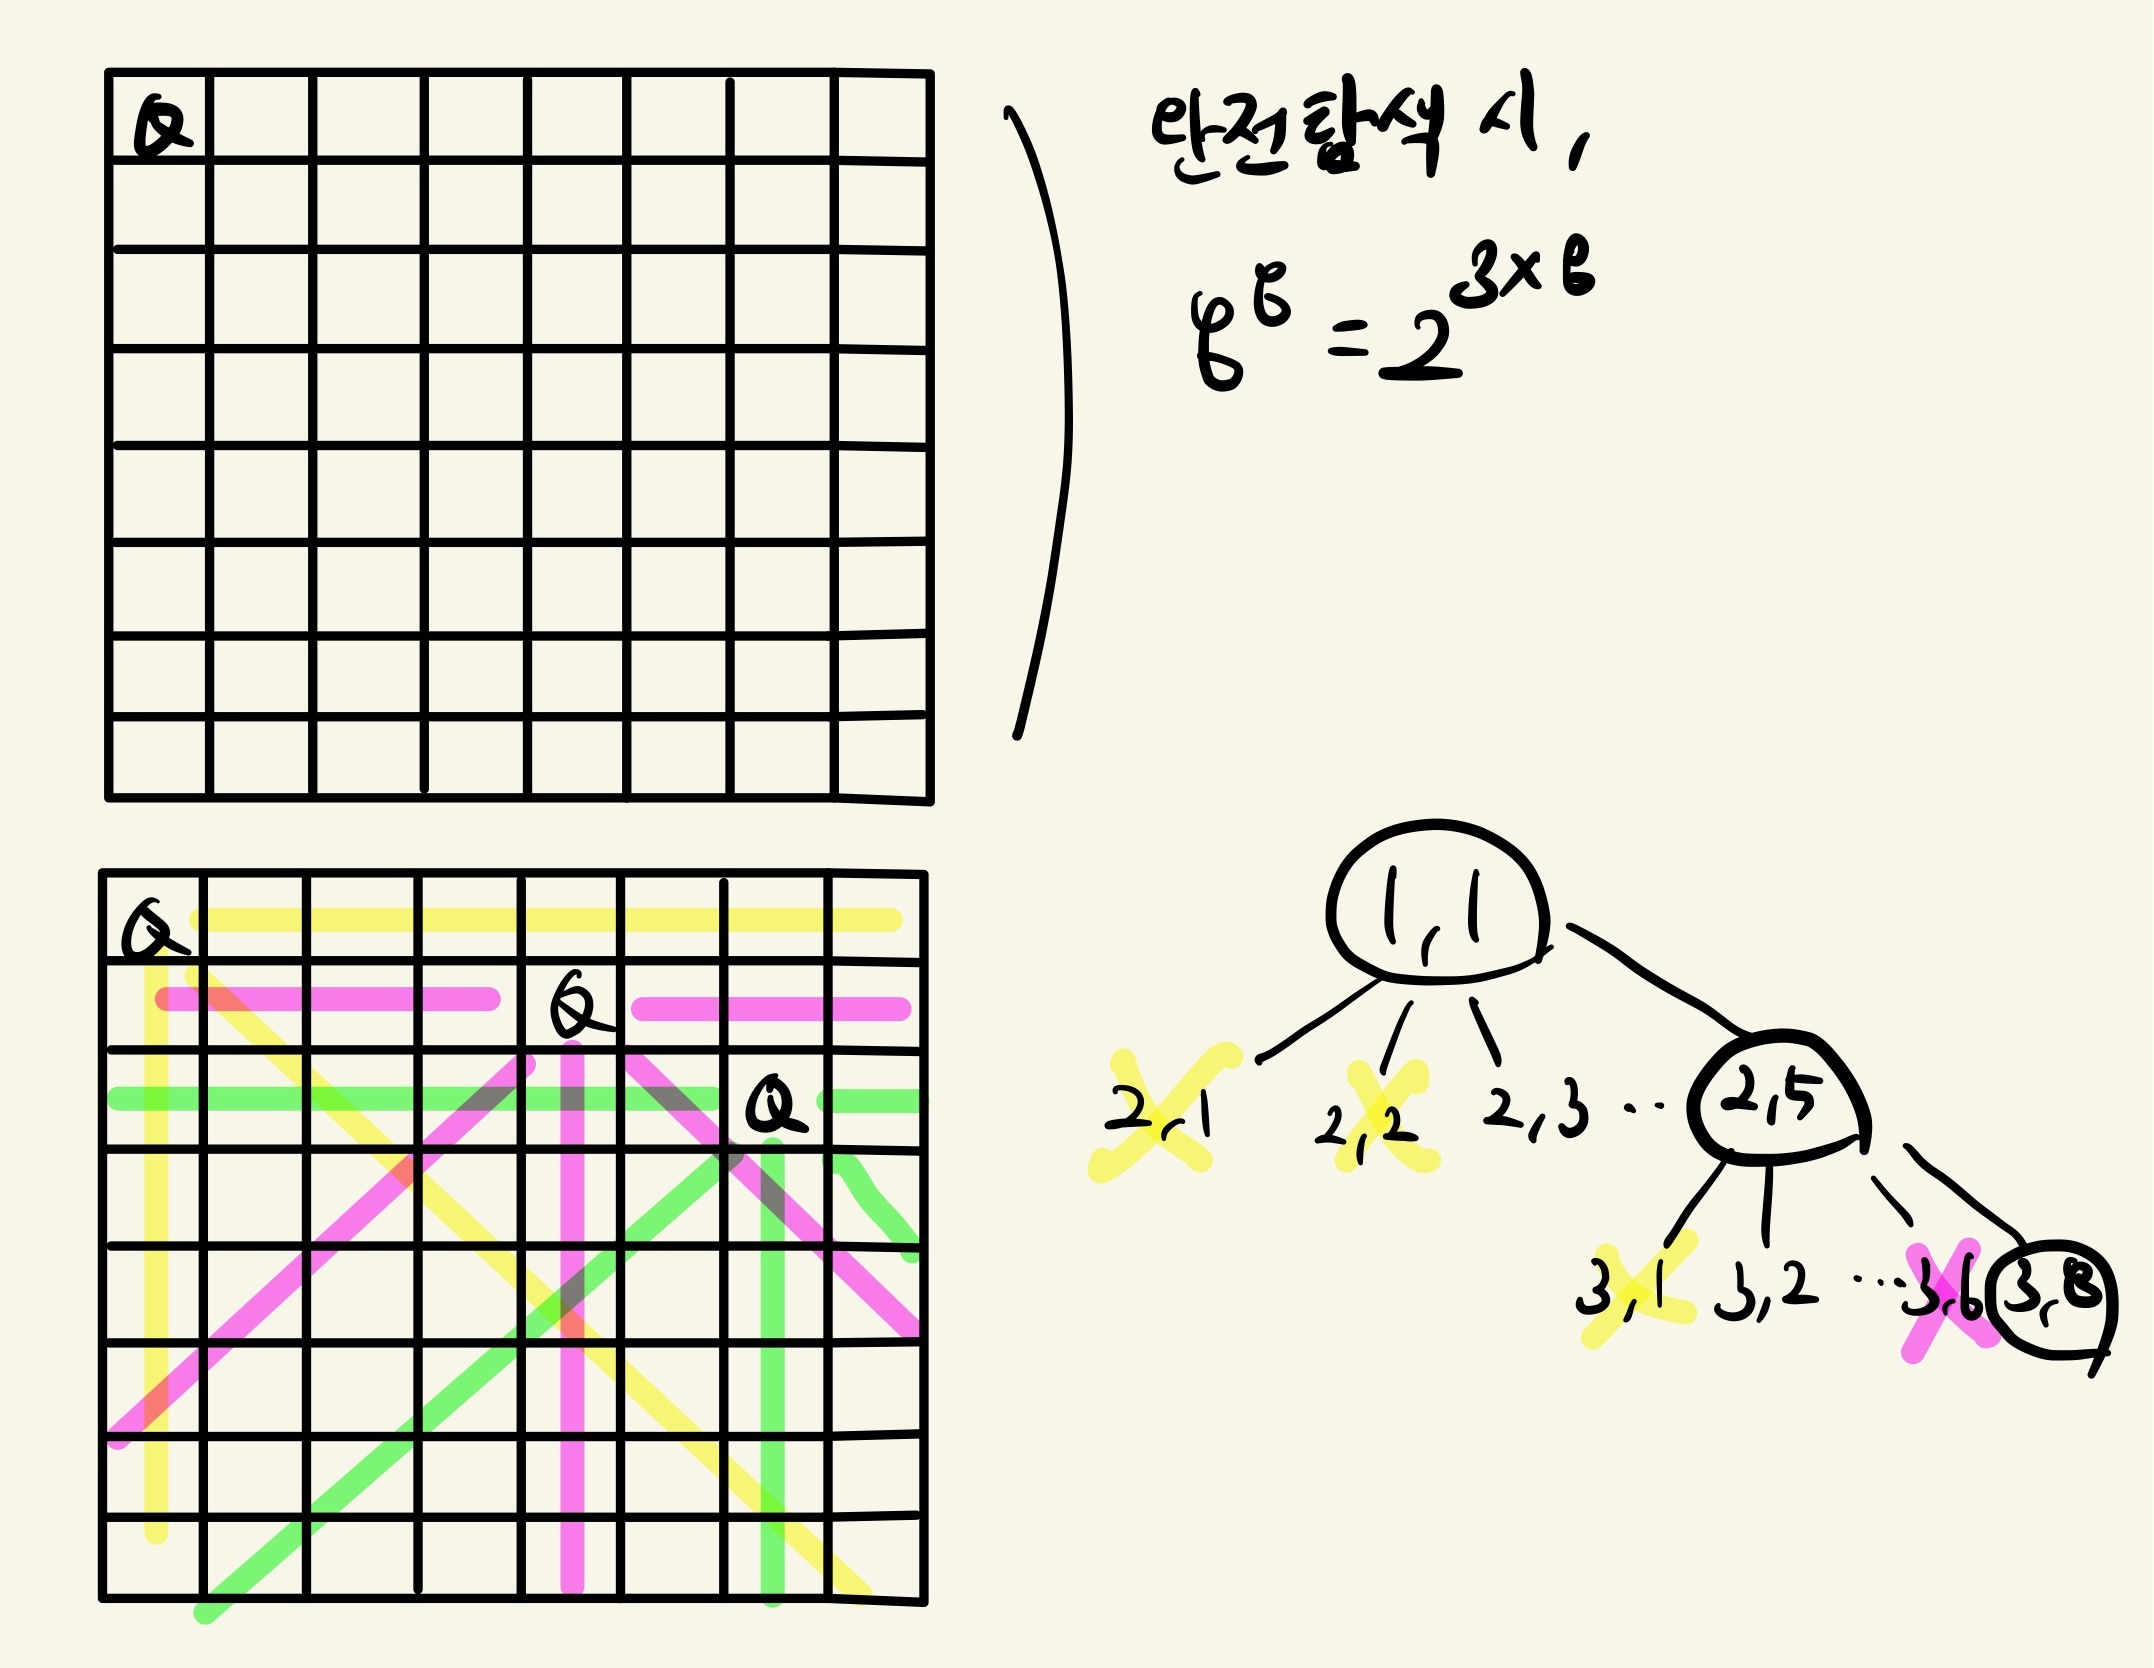 Q
8⁸ = 2³ˣ⁸
Q
Q
Q
1,1
2,1 2,2 2,3 ·· 2,5
3,1 3,2 ··· 3,6 3,8